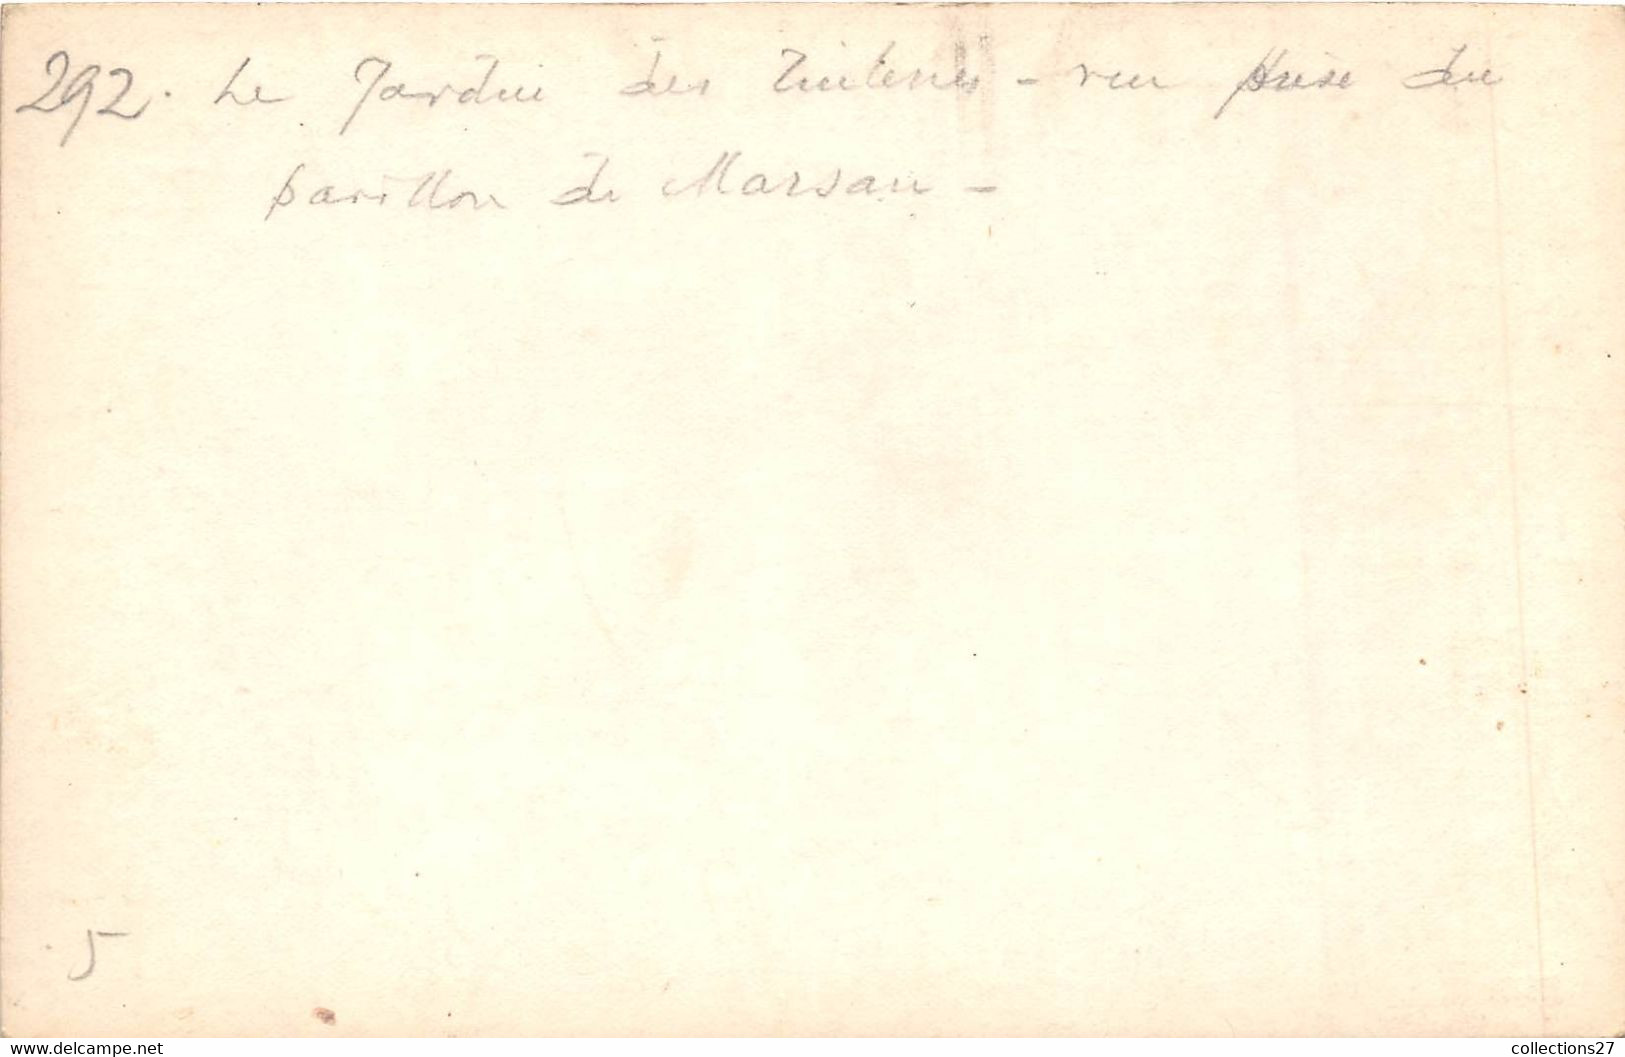 292. Le Jardin des Tuileries - vue prise du
pavillon de Marsan -
5
collections27